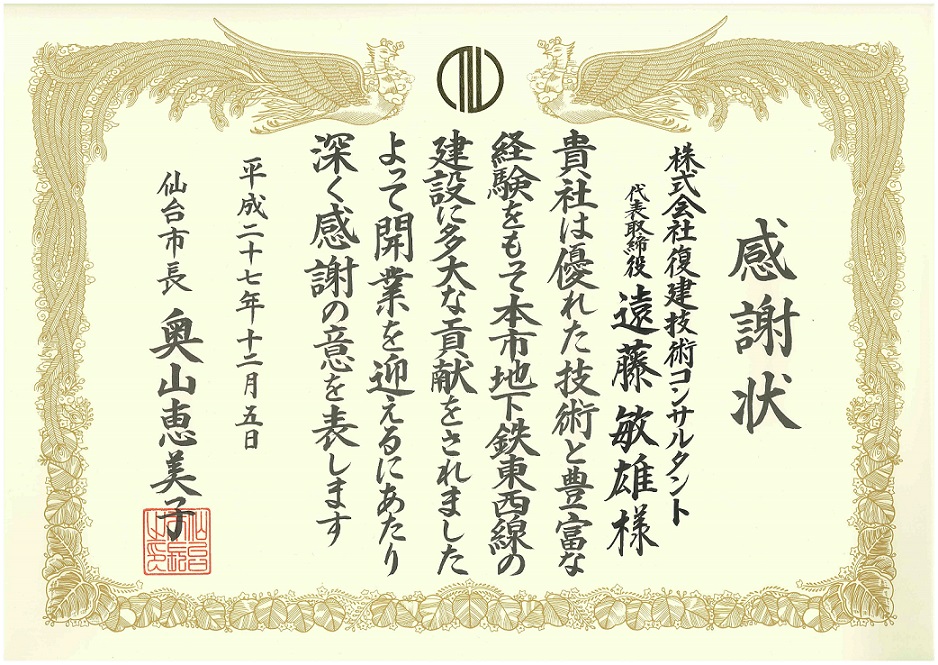 感謝状
株式会社復建技術コンサルタント
代表取締役 遠藤敏雄様
貴社は優れた技術と豊富な
経験をもって本市地下鉄東西線の
建設に多大な貢献をされました
よって開業を迎えるにあたり
深く感謝の意を表します
平成二十七年十二月五日
仙台市長 奥山恵美子
仙台市長之印